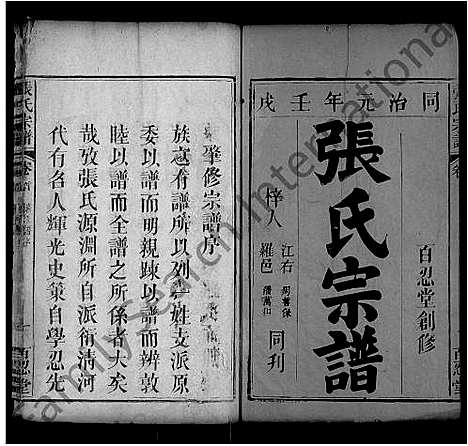 同治元年壬戌
百忍堂創修
張氏宗譜
梓人
江右
羅邑
同刊
張氏宗譜
卷首
百忍堂
肇修宗譜序
族寔有譜所以列一姓支派原
委以譜而明親踈以譜而辨敦
睦以譜而全譜之所係者大矣
哉攷張氏源淵所自派衍清河
代有名人輝光史策自學忍先
FamilySearch International